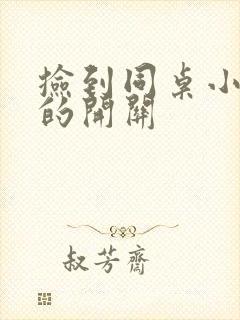 撿到同桌小
的開關
叔芳齋